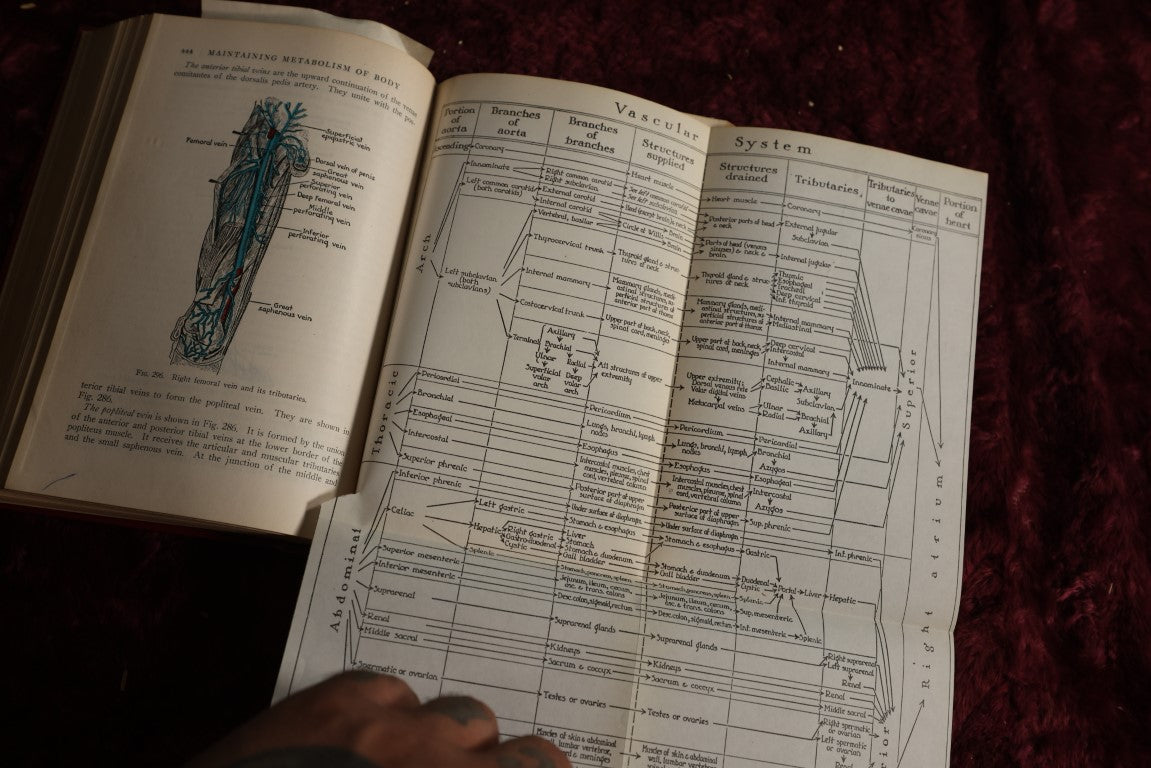 MAINTAINING METABOLISM OF BODY
The anterior tibial veins are the upward continuation of the venae
comitantes of the dorsalis pedis artery. They unite with the pos-
Superficial
epigastric vein
Femoral vein
Dorsal vein of penis
Great
saphenous vein
Superior
perforating vein
Deep femoral vein
Middle
perforating vein
Inferior
perforating vein
Great
saphenous vein
Fig. 296. Right femoral vein and its tributaries.
terior tibial veins to form the popliteal vein. They are shown in
Fig. 286.
The popliteal vein is shown in Fig. 286. It is formed by the union
of the anterior and posterior tibial veins at the lower border of the
popliteus muscle. It receives the articular and muscular tributaries
and the small saphenous vein. At the junction of the middle and
Vascular System
Portion
of
aorta
Branches
of
aorta
Branches
of
branches
Structures
supplied
Structures
drained
Tributaries,
Tributaries
to
venae cavae
Venae
cavae
Portion
of
heart
Ascending
Coronary
Heart muscle
Heart muscle
Coronary
Coronary
sinus
Arch
Innominate
Right common carotid
Right subclavian
See left common carotid
See left subclavian
Left common carotid
(both carotids)
External carotid
Internal carotid
Posterior parts of head
& neck
External jugular
Subclavian
Left subclavian
(both
subclavians)
Vertebral, basilar
Circle of Willis
Brain
Parts of head (venous
sinuses) & neck &
brain
Internal jugular
Thyrocervical trunk
Thyroid gland & struc-
tures of neck
Thyroid gland & struc-
tures of neck
Thymic
Esophageal
Tracheal
Deep cervical
Inf. thyroid
Internal mammary
Mammary glands, medi-
astinal structures, su-
perficial structures of
anterior part of thorax
Mammary glands, medi-
astinal structures, su-
perficial structures of
anterior part of thorax
Internal mammary
Mediastinal
Costocervical trunk
Upper part of back, neck,
spinal cord, meninges
Upper part of back, neck,
spinal cord, meninges
Deep cervical
Intercostal
Internal mammary
Terminal
Axillary
Brachial
Ulnar
Radial
Superficial
volar
arch
Deep
volar
arch
All structures of upper
extremity
Upper extremity:
Dorsal venous rete
Volar digital veins
Metacarpal veins
Cephalic
Basilic
Axillary
Subclavian
Ulnar
Radial
Brachial
Axillary
Innominate
Superior
Thoracic
Pericardial
Pericardium
Pericardium
Pericardial
Bronchial
Lungs, bronchi, lymph
nodes
Lungs, bronchi, lymph
nodes
Bronchial
Azygos
Esophageal
Esophagus
Esophagus
Esophageal
Intercostal
Intercostal muscles, chest
muscles, pleurae, spinal
cord, vertebral column
Intercostal muscles, chest
muscles, pleurae, spinal
cord, vertebral column
Intercostal
Azygos
Superior phrenic
Posterior part of upper
surface of diaphragm
Posterior part of upper
surface of diaphragm
Sup. phrenic
Abdominal
Inferior phrenic
Under surface of diaphragm
Under surface of diaphragm
Inf. phrenic
Celiac
Left gastric
Stomach & esophagus
Stomach & esophagus
Gastric
Hepatic
Right gastric
Gastro-duodenal
Cystic
Liver
Stomach
Stomach & duodenum
Gall bladder
Stomach & duodenum
Gall bladder
Duodenal
Cystic
Portal
Liver
Hepatic
Splenic
Stomach, pancreas, spleen
Stomach, pancreas, spleen
Splenic
Superior mesenteric
Jejunum, ileum, cecum,
asc. & trans. colons
Jejunum, ileum, cecum,
asc. & trans. colons
Sup. mesenteric
Inferior mesenteric
Desc. colon, sigmoid, rectum
Desc. colon, sigmoid, rectum
Inf. mesenteric
Splenic
Suprarenal
Suprarenal glands
Suprarenal glands
Right suprarenal
Left suprarenal
Renal
Renal
Kidneys
Kidneys
Renal
Middle sacral
Sacrum & coccyx
Sacrum & coccyx
Middle sacral
Spermatic or ovarian
Testes or ovaries
Testes or ovaries
Right spermatic
or ovarian
Left spermatic
or ovarian
Renal
Muscles of skin & abdominal
wall, lumbar vertebrae,
cord & meninges
Muscles of skin & abdominal
wall, lumbar vertebrae,
Right atrium